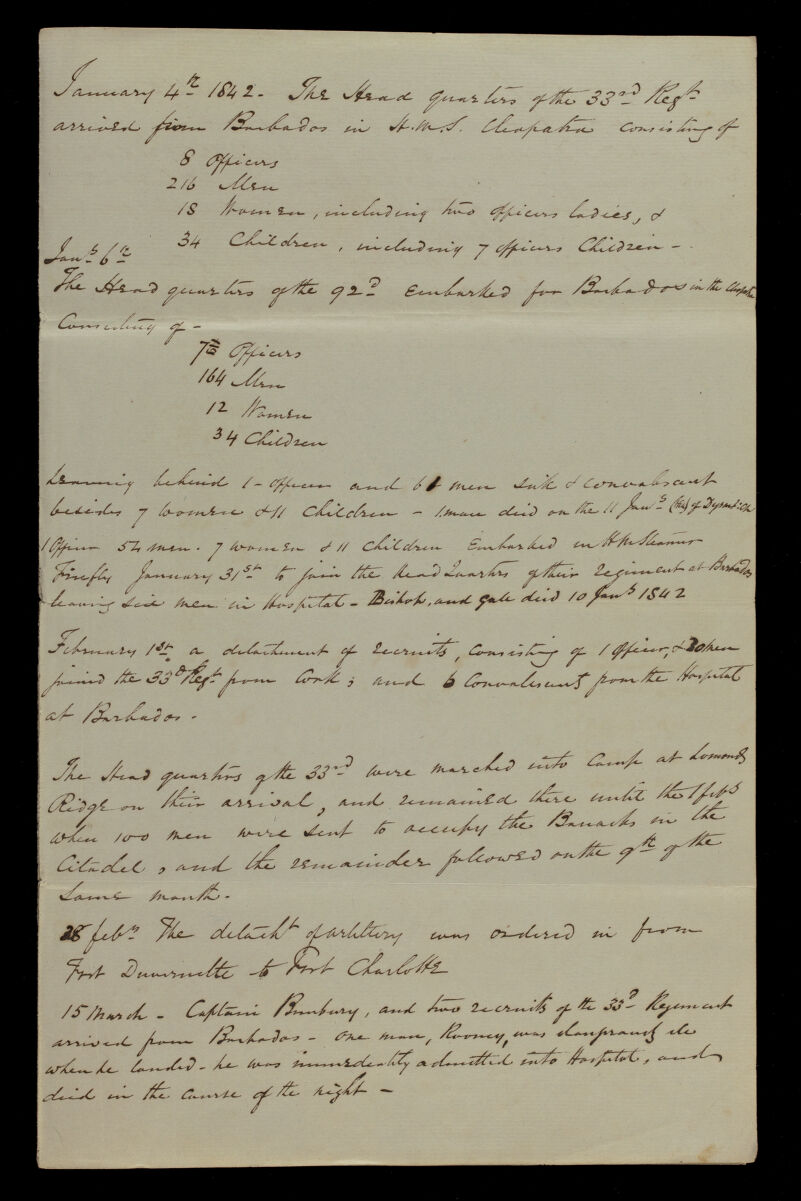 January 4th 1842 - The Head quarters of the 33rd Regt
arrived from Barbados in H.M.S. Cleopatra consisting of
8 Officers
216 Men
18 Women, including two officers ladies, &
34 Children, including 7 officers Children -
Jany 6th
The Head quarters of the 92d embarked for Barbados in the Cleopatra
Consisting of -
7 Officers
164 Men
12 Women
34 Children
Leaving behind 1 - officer and 6 men sick & convalescent
besides 7 women & 11 children - 1 man died on the 11 Jany of Dysentery
1 Officer 54 men. 7 women & 11 children Embarked in H M Steamer
Firefly January 31st to join the Head Quarters of their regiment at Barbados
leaving six men in Hospital - Bishop, and Gale died 10 Jany 1842
February 1st a detachment of recruits, consisting of 1 Officer, & 20 men
joined the 33d Regt from Cork; and 6 Convalescents from the Hospital
at Barbados -
The Head quarters of the 33rd were marched into Camp at Lomonds
Ridge on their arrival, and remained there until the 1 feby
when 100 men were sent to occupy the Barracks in the
Citadel, and the remainder followed on the 9th of the
same month -
28 feby The detacht of artillery was ordered in from
Fort Duvernette to Fort Charlotte
15 March - Captain Bunbury, and two recruits of the 33d Regiment
arrived from Barbados - one man, Rooney, was dangerously ill
when he landed - he was immediately admitted into Hospital, and
died in the course of the night -